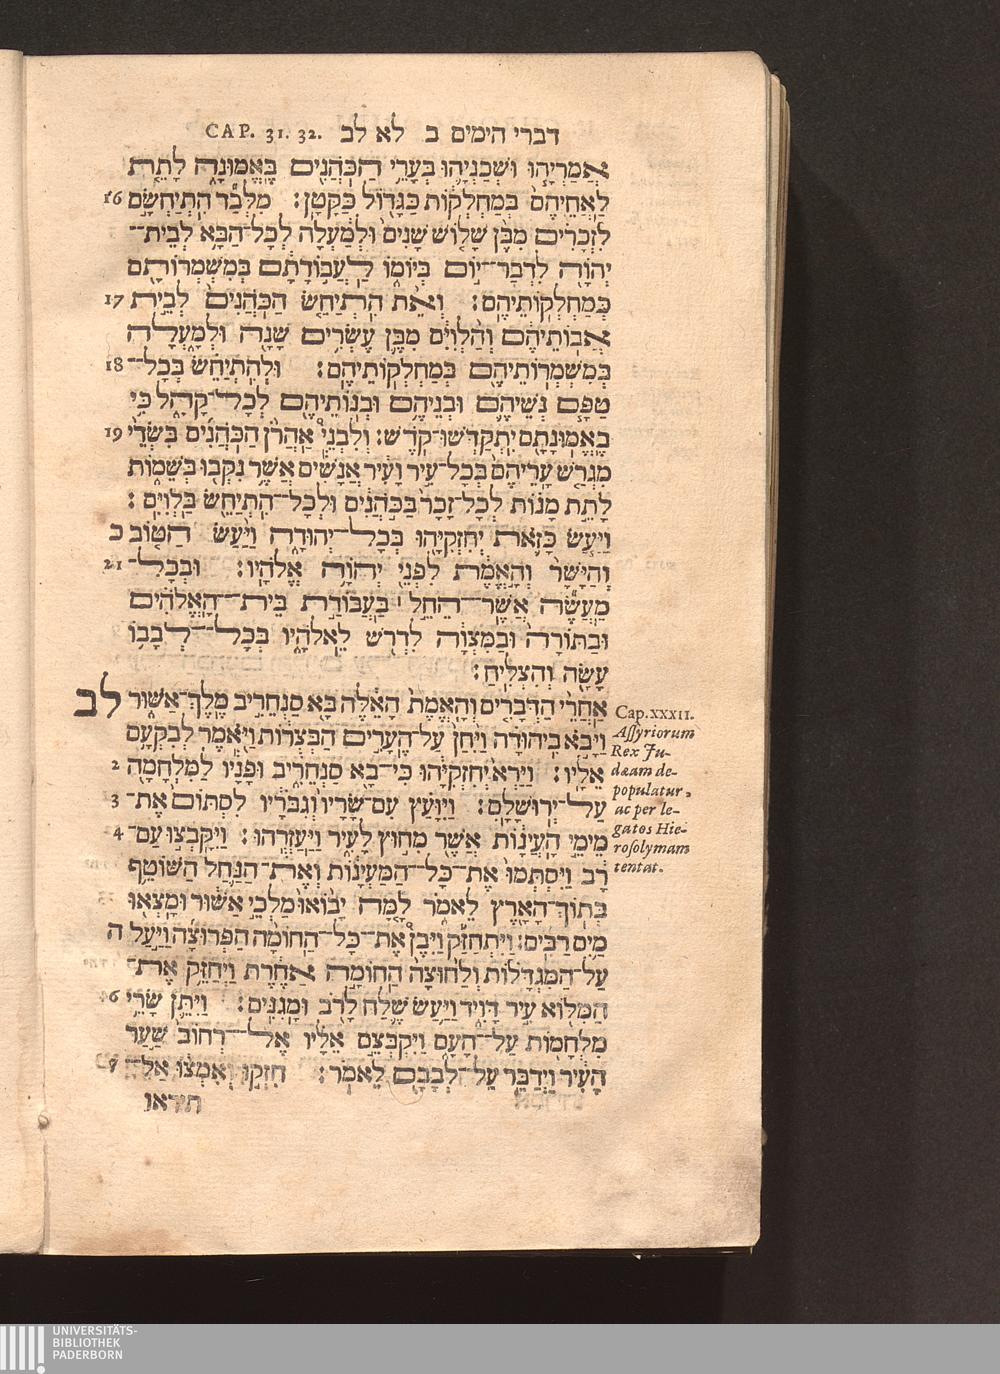 דברי הימים ב לא לב CAP. 31. 32.
אֲמַרְיָהוּ וּשְׁכַנְיָהוּ בְּעָרֵי הַכֹּהֲנִים בֶּאֱמוּנָה לָתֵת
לַאֲחֵיהֶם בְּמַחְלְקוֹת כַּגָּדוֹל כַּקָּטָן׃ מִלְּבַד הִתְיַחְשָׂם 16
לִזְכָרִים מִבֶּן שָׁלוֹשׁ שָׁנִים וּלְמַעְלָה לְכָל־הַבָּא לְבֵית־
יְהוָה לִדְבַר־יוֹם בְּיוֹמוֹ לַעֲבוֹדָתָם בְּמִשְׁמְרוֹתָם
כְּמַחְלְקוֹתֵיהֶם׃ וְאֵת הִתְיַחֵשׂ הַכֹּהֲנִים לְבֵית 17
אֲבוֹתֵיהֶם וְהַלְוִיִּם מִבֶּן עֶשְׂרִים שָׁנָה וּלְמָעְלָה
בְּמִשְׁמְרוֹתֵיהֶם בְּמַחְלְקוֹתֵיהֶם׃ וּלְהִתְיַחֵשׂ בְּכָל־ 18
טַפָּם נְשֵׁיהֶם וּבְנֵיהֶם וּבְנוֹתֵיהֶם לְכָל־קָהָל כִּי
בֶאֱמוּנָתָם יִתְקַדְּשׁוּ־קֹדֶשׁ׃ וְלִבְנֵי אַהֲרֹן הַכֹּהֲנִים בִּשְׂדֵי 19
מִגְרַשׁ עָרֵיהֶם בְּכָל־עִיר וָעִיר אֲנָשִׁים אֲשֶׁר נִקְּבוּ בְּשֵׁמוֹת
לָתֵת מָנוֹת לְכָל־זָכָר בַּכֹּהֲנִים וּלְכָל־הִתְיַחֵשׂ בַּלְוִיִּם׃
וַיַּעַשׂ כָּזֹאת יְחִזְקִיָּהוּ בְּכָל־יְהוּדָה וַיַּעַשׂ הַטּוֹב כ
וְהַיָּשָׁר וְהָאֱמֶת לִפְנֵי יְהוָה אֱלֹהָיו׃ וּבְכָל־ 21
מַעֲשֶׂה אֲשֶׁר־הֵחֵל ׀ בַּעֲבוֹדַת בֵּית־הָאֱלֹהִים
וּבַתּוֹרָה וּבַמִּצְוָה לִדְרֹשׁ לֵאלֹהָיו בְּכָל־לְבָבוֹ
עָשָׂה וְהִצְלִיחַ׃
אַחֲרֵי הַדְּבָרִים וְהָאֱמֶת הָאֵלֶּה בָּא סַנְחֵרִיב מֶלֶךְ־אַשּׁוּר לב
וַיָּבֹא בִיהוּדָה וַיִּחַן עַל־הֶעָרִים הַבְּצֻרוֹת וַיֹּאמֶר לְבִקְעָם
אֵלָיו׃ וַיַּרְא יְחִזְקִיָּהוּ כִּי־בָא סַנְחֵרִיב וּפָנָיו לַמִּלְחָמָה 2
עַל־יְרוּשָׁלִָם׃ וַיִּוָּעַץ עִם־שָׂרָיו וְגִבֹּרָיו לִסְתּוֹם אֶת־ 3
מֵימֵי הָעֲיָנוֹת אֲשֶׁר מִחוּץ לָעִיר וַיַּעְזְרֻהוּ׃ וַיִּקָּבְצוּ עַם־ 4
רָב וַיִּסְתְּמוּ אֶת־כָּל־הַמַּעְיָנוֹת וְאֶת־הַנַּחַל הַשּׁוֹטֵף
בְּתוֹךְ־הָאָרֶץ לֵאמֹר לָמָּה יָבוֹאוּ מַלְכֵי אַשּׁוּר וּמָצְאוּ
מַיִם רַבִּים׃ וַיִּתְחַזַּק וַיִּבֶן אֶת־כָּל־הַחוֹמָה הַפְּרוּצָה וַיַּעַל ה
עַל־הַמִּגְדָּלוֹת וְלַחוּצָה הַחוֹמָה אַחֶרֶת וַיְחַזֵּק אֶת־
הַמִּלּוֹא עִיר דָּוִיד וַיַּעַשׂ שֶׁלַח לָרֹב וּמָגִנִּים׃ וַיִּתֵּן שָׂרֵי 6
מִלְחָמוֹת עַל־הָעָם וַיִּקְבְּצֵם אֵלָיו אֶל־רְחוֹב שַׁעַר
הָעִיר וַיְדַבֵּר עַל־לְבָבָם לֵאמֹר׃ חִזְקוּ וְאִמְצוּ אַל־ 7
תיראו
Cap.xxxii.
Assyriorum
Rex Ju-
dæam de-
populatur,
ac per le-
gatos Hie-
rosolymam
tentat.
UNIVERSITÄTS-
BIBLIOTHEK
PADERBORN